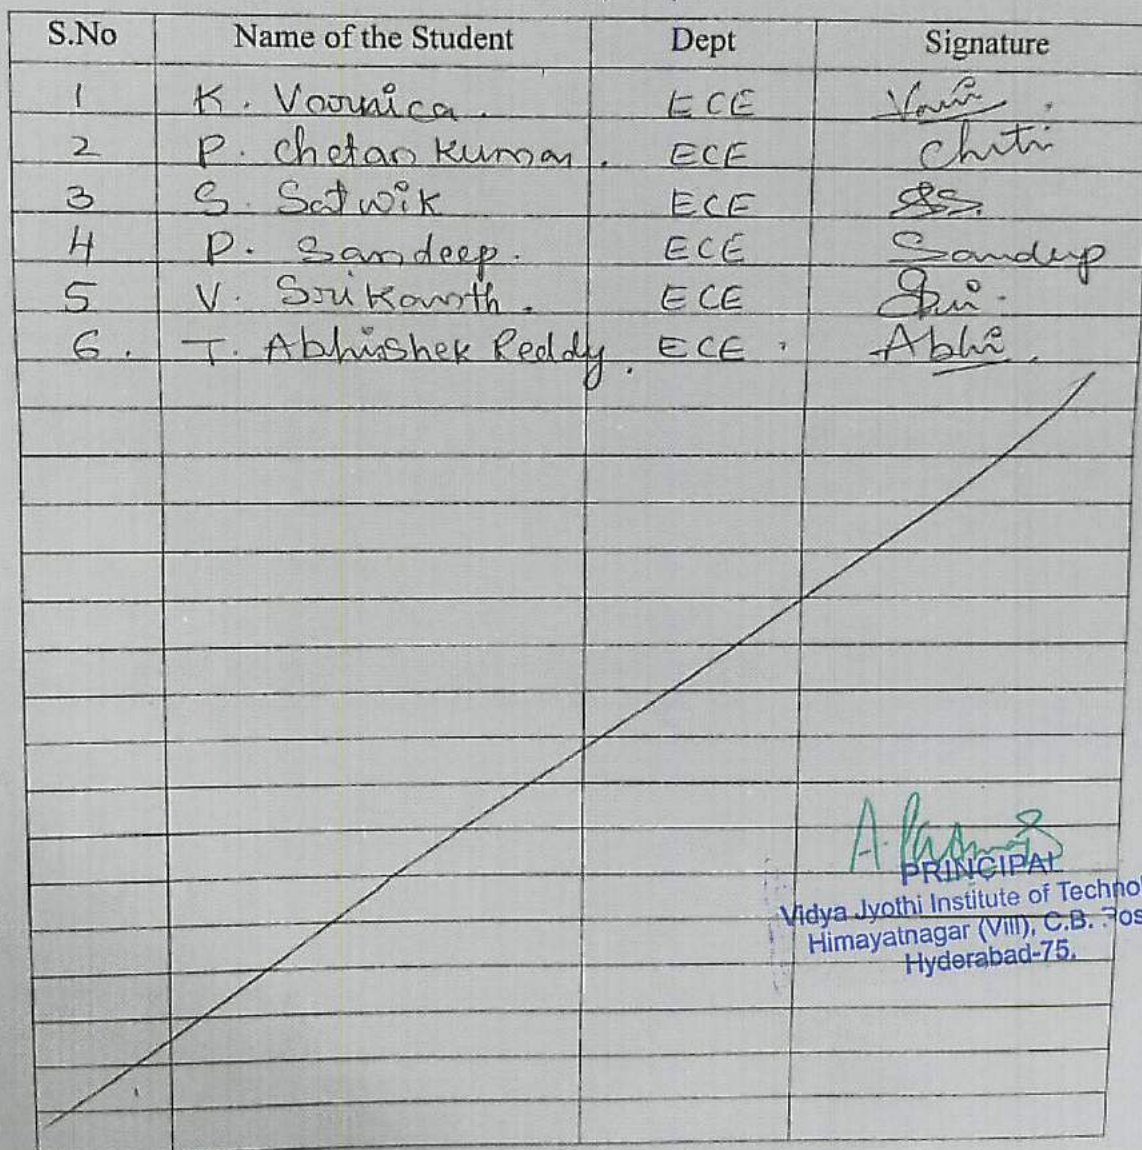 S.No Name of the Student Dept Signature
1 K. Varnica. ECE
2 P. Chetan Kumar. ECE Chiti
3 S. Satwik ECE SS.
4 P. Sandeep. ECE Sandeep
5 V. Srikanth. ECE Sri.
6. T. Abhishek Reddy. ECE. Abhi.
PRINCIPAL
Vidya Jyothi Institute of Technol
Himayatnagar (Vill), C.B. Pos
Hyderabad-75.